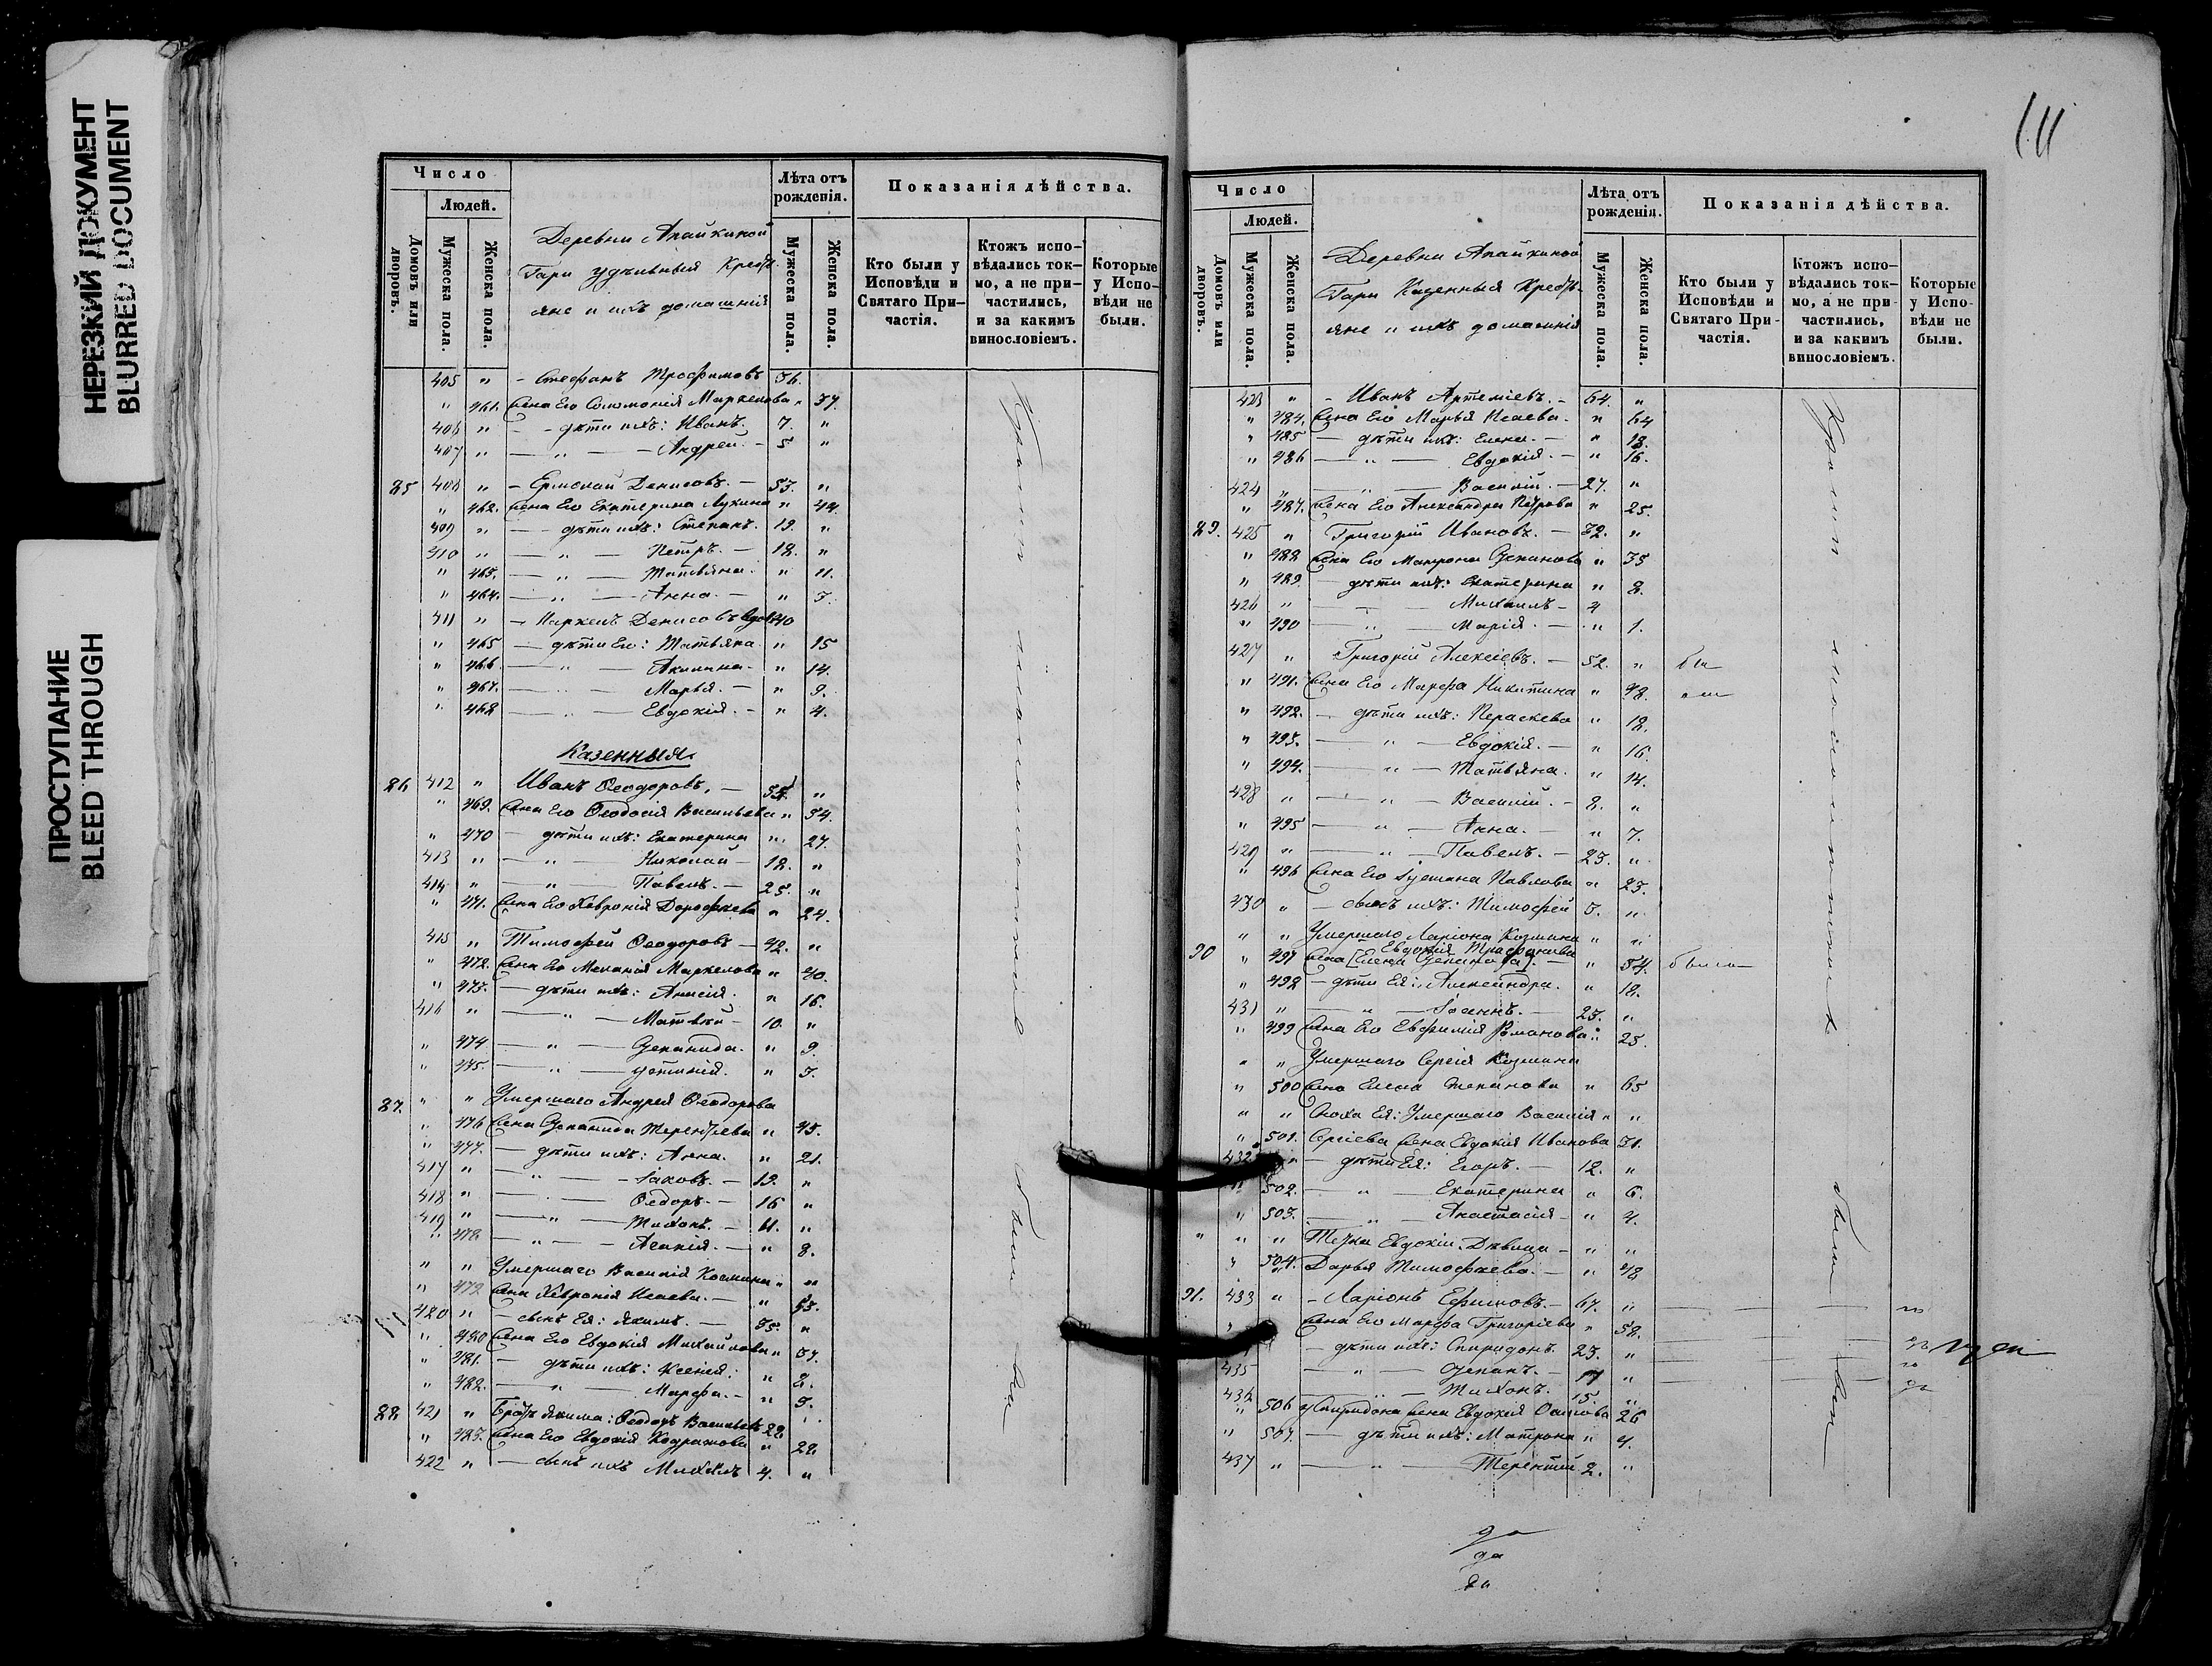 НЕРЕЗКИЙ ДОКУМЕНТ
BLURRED DOCUMENT
ПРОСТУПАНИЕ
BLEED THROUGH
Число
Людей.
Домовъ или дворовъ.
Мужеска пола.
Женска пола.
Деревни Апайкиной
Гари удѣльныя Кресть
яне и ихъ домашнія
Лѣта отъ рожденія.
Мужеска пола.
Женска пола.
Показанія дѣйства.
Кто были у Исповѣди и Святаго Причастія.
Ктожъ исповѣдались токмо, а не причастились, и за какимъ винословіемъ.
Которые у Исповѣди не были.
405 " - Стефанъ Трофимовъ 36.
" 461. Жена Его Соломонія Маркелова " 37.
406 " - дѣти ихъ: Иванъ. 7. "
407 " — " — Андрей - 5 "
85 408 " - Ермолай Денисовъ. - 53. "
" 462. Жена Его Екатерина Лукина " 44.
409 " - дѣти ихъ: Степанъ. 19. "
410 " — " — Петръ. - 12. "
" 463. — " — Татьяна. " 11.
" 464. — " — Анна. - " 3.
411 " - Маркелъ Денисовъ вдов 40
" 465 - дѣти Его: Татьяна. " 15
" 466. — " — Акилина. - " 14.
" 467. — " — Марья. - " 9.
" 468 — " — Евдокія. - " 4.
Казенныя.
86 412 " Иванъ Ѳеодоровъ. - 54. "
" 469. Жена Его Ѳеодосія Васильева " 54.
" 470 - дѣти ихъ: Екатерина " 27.
413 " — " — Николай - 18. "
414 " — " — Павелъ. - 25. "
" 471. Жена Его Хевронія Дорофеева " 24.
415 " Тимофей Ѳеодоровъ - 42. "
" 472. Жена Его Меланія Маркелова " 40.
" 473. - дѣти ихъ: Анисія. " 16.
416 " — " — Матвѣй - 10. "
" 474 — " — Степанида. " 9.
" 475. — " — Устинія. " 3.
87. " " Умершаго Андрея Ѳеодорова
" 476 Жена Степанида Терентьева " 45.
" 477. - дѣти ихъ: Анна. " 21.
417 " — " — Іаковъ. - 19. "
418 " — " — Ѳедоръ. - 16 "
419 " — " — Тихонъ. - 11. "
" 478 — " — Агапія. - " 8.
" " Умершаго Василія Косьмина " "
" 479 Жена Хевронія Исаева. - " 55.
420 " - сынъ Ея: Якимъ. - 35. "
" 480 Жена Его Евдокія Михайлова " 37.
" 481. - дѣти ихъ: Ксенія. " 8.
" 482. — " — Марфа. - " 3.
88 421 " Братъ Якима: Ѳеодоръ Васильевъ 28.
" 483. Жена Его Евдокія Кодратова " 28.
422 " - сынъ ихъ Михаилъ 4. "
были
Число
Людей.
Домовъ или дворовъ.
Мужеска пола.
Женска пола.
Деревни Апайкиной
Гари Казенныя Кресть-
яне и ихъ домашнія
Лѣта отъ рожденія.
Мужеска пола.
Женска пола.
Показанія дѣйства.
Кто были у Исповѣди и Святаго Причастія.
Ктожъ исповѣдались токмо, а не причастились, и за какимъ винословіемъ.
Которые у Исповѣди не были.
423 " - Иванъ Артеміевъ. - 64. "
" 484. Жена Его Марья Исаева. - " 64
" 485 - дѣти ихъ: Елена. - " 18.
" 486 — " — Евдокія. - " 16.
424 " — " — Василій. - 27. "
" 487. Жена Его Александра Петрова " 25.
89. 425 " Григорій Ивановъ. - 32. "
" 488 Жена Его Матрона Степанова " 35
" 489. - дѣти ихъ: Екатерина " 8.
426 " — " — Михаилъ - 4
" 490 — " — Марія. - " 1.
427 " Григорій Алексіевъ. - 52. "
" 491. Жена Его Марфа Никитина " 48.
" 492. - дѣти ихъ: Пераскева " 18.
" 493. — " — Евдокія. - " 16.
" 494. — " — Татьяна. " 14.
428 " — " — Василій. - 8. "
" 495 — " — Анна. - " 7.
429 " — " — Павелъ. - 23. "
" 496 Жена Его Іустина Павлова " 23.
430 " - сынъ ихъ: Тимофей 3. "
" " Умершаго Ларіона Козмина " "
90 " 497 Жена [Елена Степанова]. - " 54. были
Евдокія Трафонова
" 498 - дѣти Ея: Александра. " 18.
431 " — " — Іоаннъ. - 25. "
" 499 Жена Его Евфимія Романова " 25.
" " Умершаго Сергія Козмина
" 500 Жена Елена Степанова " 65
" " Сноха Ея: Умершаго Василія " "
" 501. Сергіева Жена Евдокія Иванова 31.
432 " - дѣти Ея: Егоръ. - 12. "
" 502. — " — Екатерина " 6.
" 503. — " — Анастасія - " 4.
" " " Тетка Евдокіи. Дѣвица - " "
" 504. Дарья Тимофеева. - " 48
91. 433 " - Ларіонъ Ефимовъ. - 67. "
" Жена Его Марфа Григоріева " 58.
- дѣти ихъ: Спиридонъ. 23. "
435 — " — Степанъ. - 17 "
436 — " — Тихонъ. 15 "
" 506 у Спиридона жена Евдокія Осипова 26
" 507. - дѣти ихъ: Матрона " 4.
437 " — " — Терентій 2. "
были
да
да